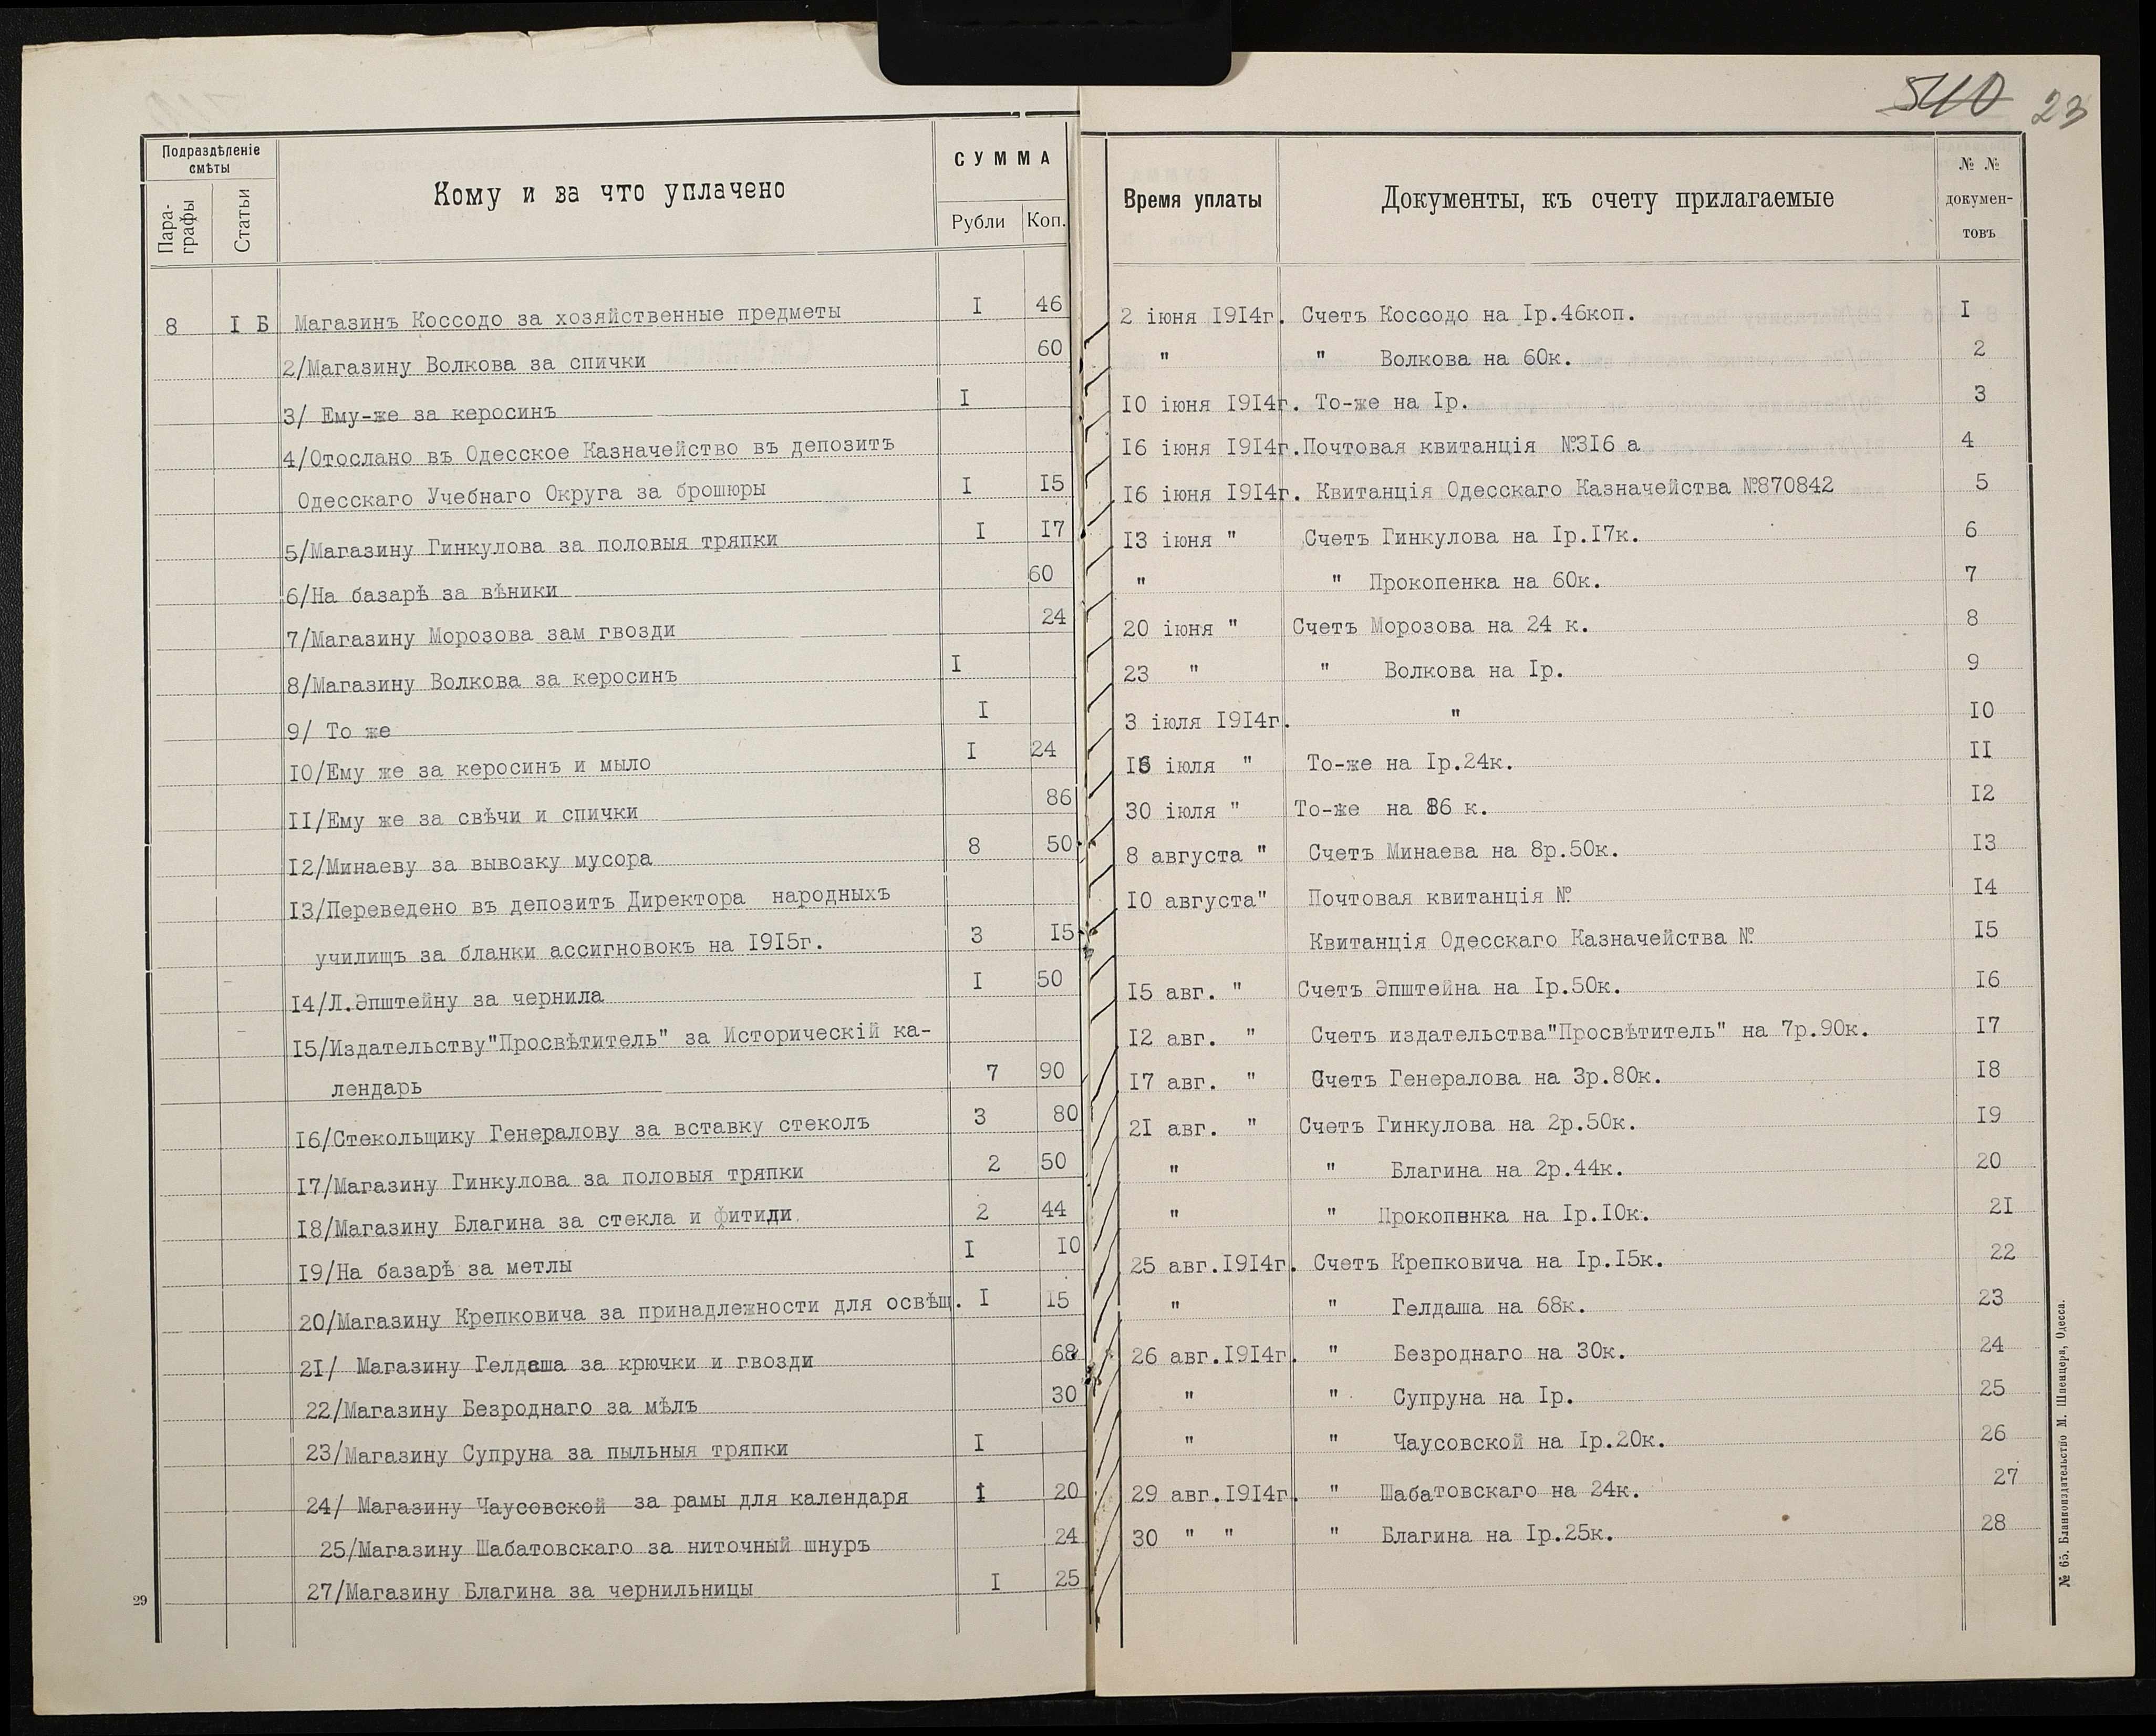 540 23
Подраздѣленіе
смѣты
Пара-
графы
Статьи
Кому и за что уплачено
СУММА
Рубли Коп.
8 I Б Магазинъ Коссодо за хозяйственные предметы I 46
2/Магазину Волкова за спички 60
3/ Ему-же за керосинъ I
4/Отослано въ Одесское Казначейство въ депозитъ
Одесскаго Учебнаго Округа за брошюры I I5
5/Магазину Гинкулова за половыя тряпки I I7
6/На базарѣ за вѣники 60
7/Магазину Морозова зам гвозди 24
8/Магазину Волкова за керосинъ I
9/ То же I
I0/Ему же за керосинъ и мыло I 24
II/Ему же за свѣчи и спички 86
I2/Минаеву за вывозку мусора 8 50
I3/Переведено въ депозитъ Директора народныхъ
училищъ за бланки ассигновокъ на I9I5г. 3 I5
I4/Л.Эпштейну за чернила I 50
I5/Издательству"Просвѣтитель" за Историческій ка-
лендарь 7 90
I6/Стекольщику Генералову за вставку стеколъ 3 80
I7/Магазину Гинкулова за половыя тряпки 2 50
I8/Магазину Благина за стекла и фитили 2 44
I9/На базарѣ за метлы I I0
20/Магазину Крепковича за принадлежности для освѣщ. I I5
2I/ Магазину Гелдаша за крючки и гвозди 68
22/Магазину Безроднаго за мѣлъ 30
23/Магазину Супруна за пыльныя тряпки I
24/ Магазину Чаусовской за рамы для календаря I 20
25/Магазину Шабатовскаго за ниточный шнуръ 24
27/Магазину Благина за чернильницы I 25
29
Время уплаты
Документы, къ счету прилагаемые
№ №
докумен-
товъ
2 іюня I9I4г. Счетъ Коссодо на Iр.46коп. I
" " Волкова на 60к. 2
I0 іюня I9I4г. То-же на Iр. 3
I6 іюня I9I4г.Почтовая квитанція №3I6 а 4
I6 іюня I9I4г. Квитанція Одесскаго Казначейства №870842 5
I3 іюня " Счетъ Гинкулова на Iр.I7к. 6
" " Прокопенка на 60к. 7
20 іюня " Счетъ Морозова на 24 к. 8
23 " " Волкова на Iр. 9
3 іюля I9I4г. " I0
іюля " То-же на Iр.24к. II
30 іюля " То-же на 86 к. I2
8 августа " Счетъ Минаева на 8р.50к. I3
I0 августа" Почтовая квитанція № I4
Квитанція Одесскаго Казначейства № I5
I5 авг. " Счетъ Эпштейна на Iр.50к. I6
I2 авг. " Счетъ издательства"Просвѣтитель" на 7р.90к. I7
I7 авг. " Счетъ Генералова на 3р.80к. I8
2I авг. " Счетъ Гинкулова на 2р.50к. I9
" " Благина на 2р.44к. 20
" " Прокопенка на Iр.I0к. 2I
25 авг.I9I4г. Счетъ Крепковича на Iр.I5к. 22
" " Гелдаша на 68к. 23
26 авг.I9I4г. " Безроднаго на 30к. 24
" " Супруна на Iр. 25
" " Чаусовской на Iр.20к. 26
29 авг.I9I4г. " Шабатовскаго на 24к. 27
30 " " " Благина на Iр.25к. 28
№ 65. Бланкоиздательство М. Шпенцера, Одесса.